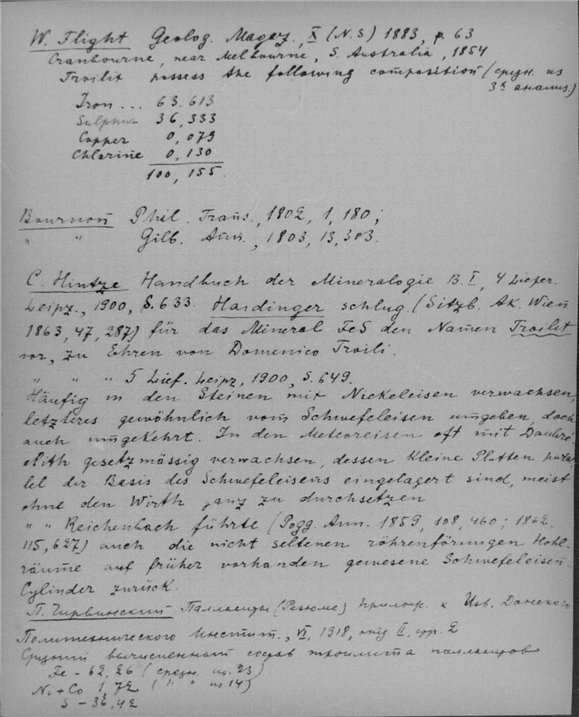 W. Flight Geolog. Magaz., X (N.S) 1883, p. 63
Cranbourne, near Melbourne, S. Australia, 1854
Troilit possess the following composition (средн. из
3х анализ.)
Iron ... 63,613
Sulphur 36,333
Copper 0,079
Chlorine 0,130
100,155.
Bournon Phil. Trans., 1802, 1, 180;
" " Gilb. Ann., 1803, 13, 303.
C. Hintze Handbuch der Mineralogie B. I, 4 Liefer.
Leipz., 1900, S. 633. Haidinger schlug (Sitzb. Ak. Wien
1863, 47, 287) für das Mineral FeS den Namen Troilit
vor, zu Ehren von Domenico Troili.
" " " 5 Lief. Leipz, 1900, S. 649.
Häufig in den Steinen mit Nickeleisen verwachsen,
letzteres gewöhnlich vom Schwefeleisen umgeben, doch
auch umgekehrt. In den Meteoreisen oft mit Daubré
elith gesetzmässig verwachsen, dessen kleine Platten paral
lel der Basis des Schwefeleisens eingelagert sind, meist
ohne den Wirth ganz zu durchsetzen
" " Reichenbach führte (Pogg. Ann. 1859, 108, 460; 1862,
115, 627) auch die nicht seltenen röhrenförmigen Hohl-
räume auf früher vorhanden gewesene Schwefeleisen-
Cylinder zurück.
П. Чирвинский Палласиты (Резюме) Прилож. к Изв. Донского
Политехнического Инстит., VI, 1918, отд. II, стр. 2
Средний вычисленный состав троилита палласитов
Fe - 62,26 (средн. из 23)
Ni + Co 1,72 (" " из 14)
S - 36,42